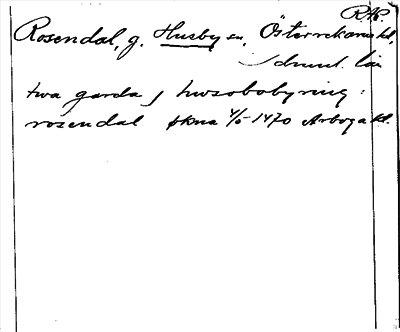 RAP.
Rosendal, g. Husby sn, Österrekarne hd,
Södml. län
twa garda j hwsobobyning:
rosendal skna 4/5-1470 Arboga kl.